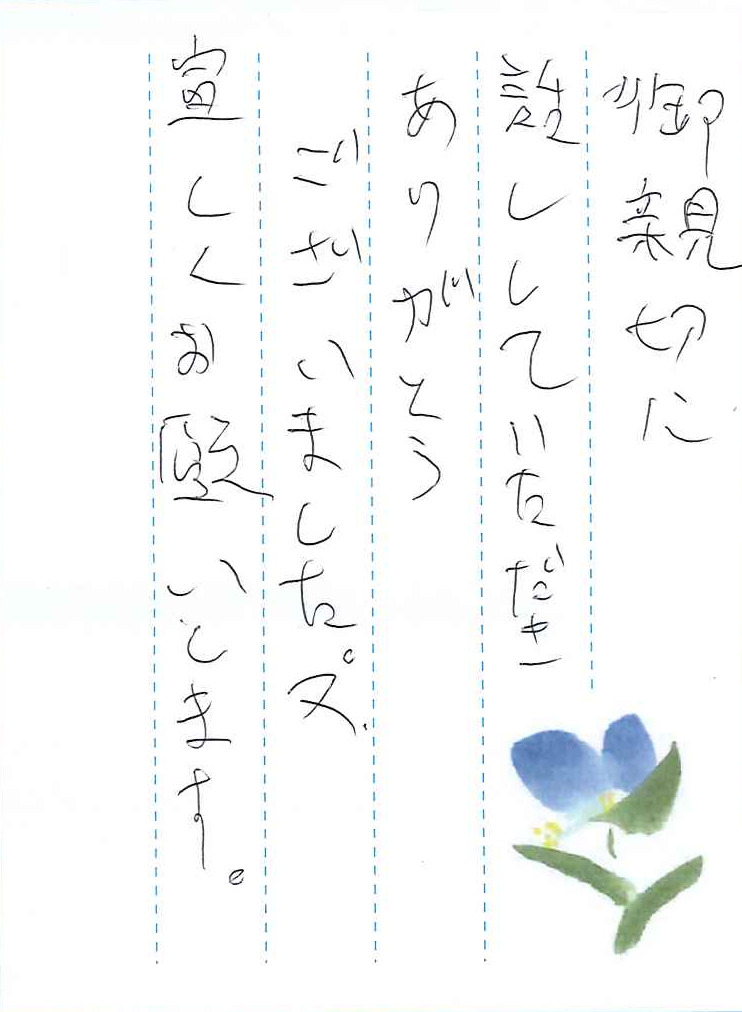 御親切に
設ししていただき
ありがとう
ございました。又、
宣しくお願いとます。